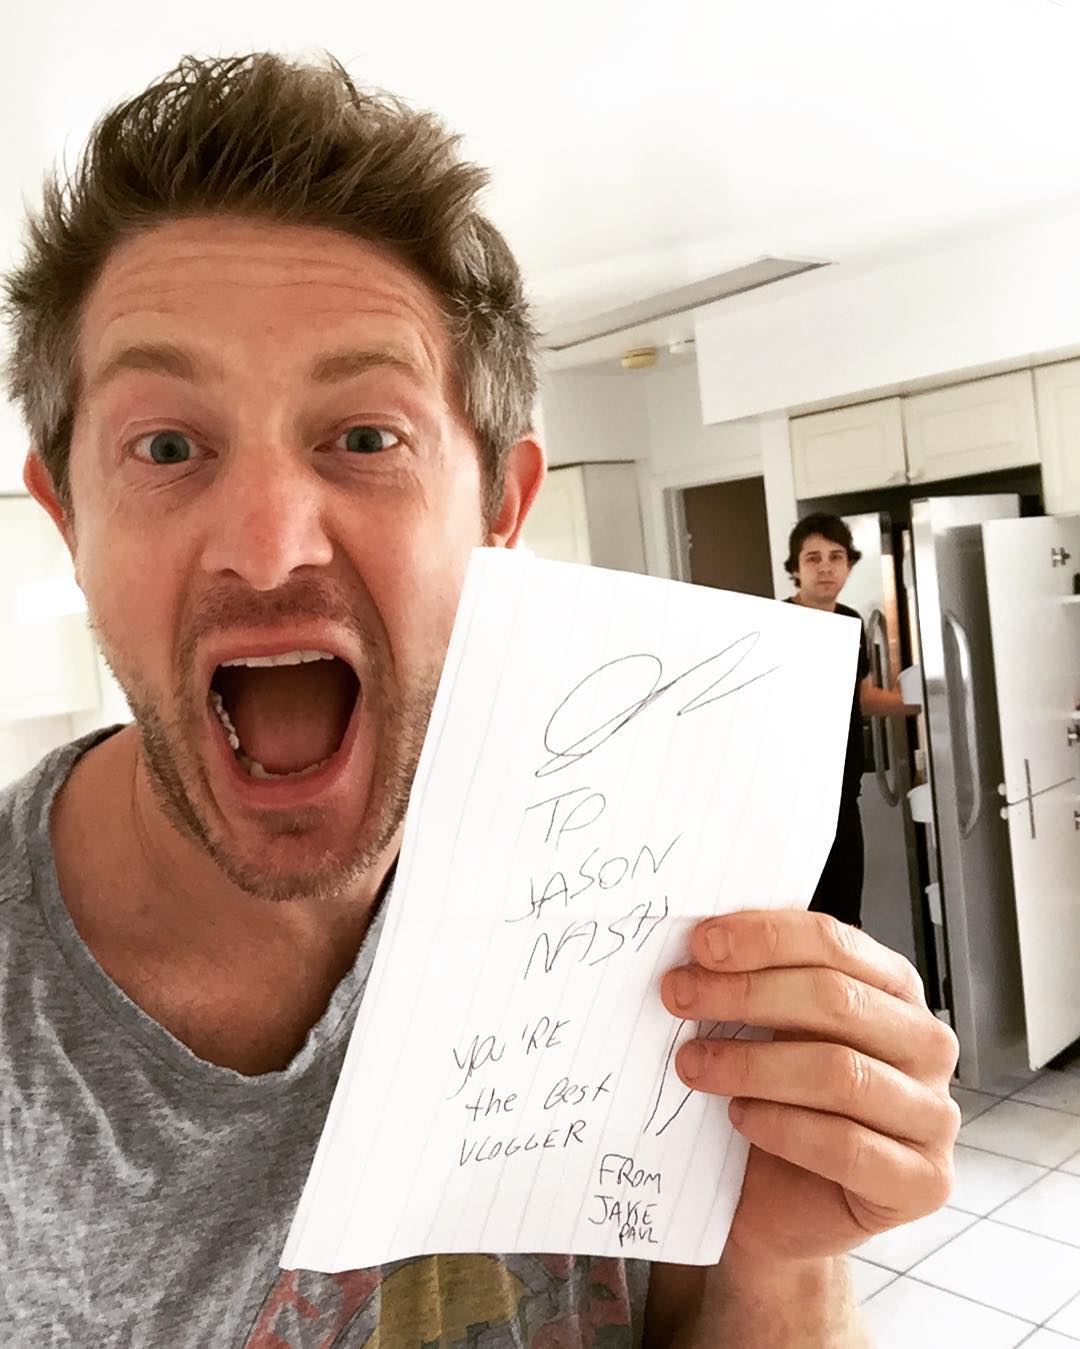 TO
JASON
NASH
YOU'RE
the Best
VLOGGER
FROM
JAKE
PAUL